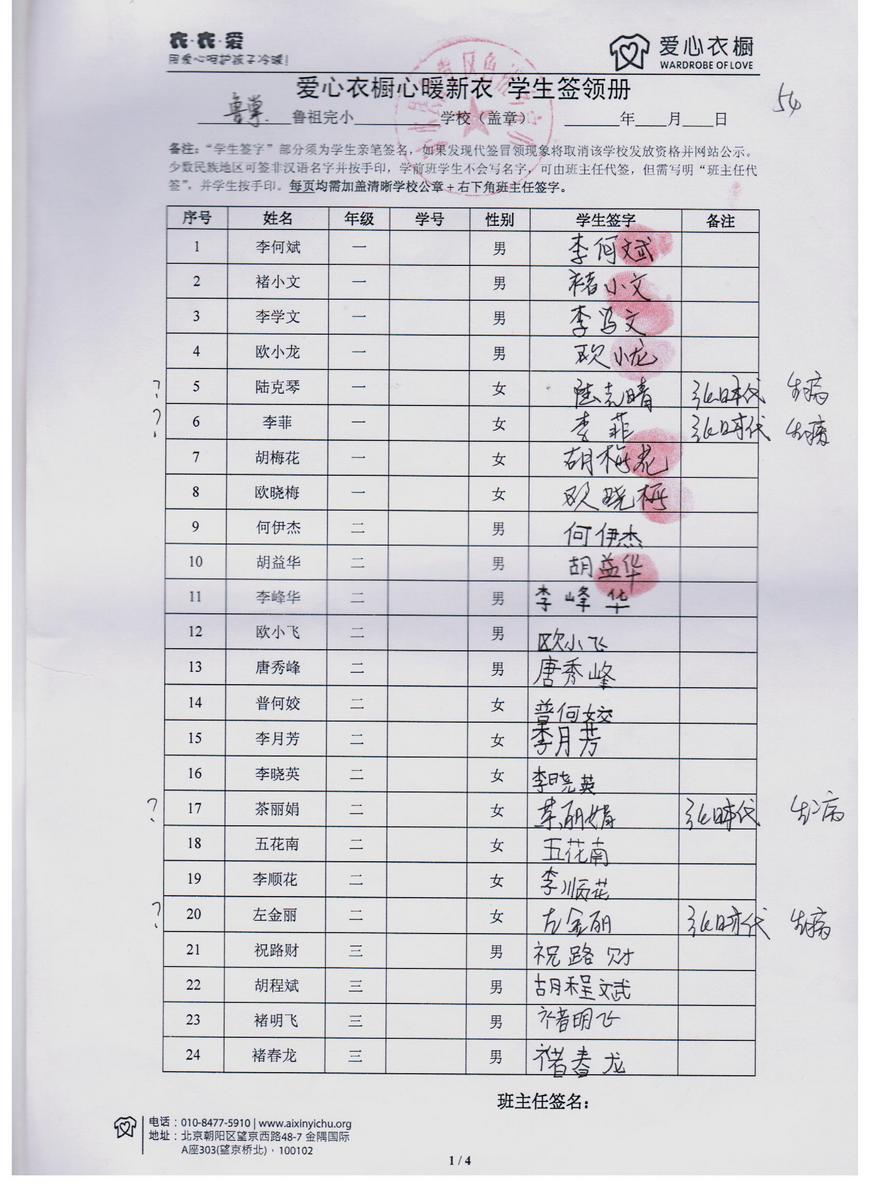 衣·衣·爱
用爱心呵护孩子冷暖!
爱心衣橱
WARDROBE OF LOVE
54
爱心衣橱心暖新衣 学生签领册
鲁掌 鲁祖完小 学校（盖章） 年 月 日
备注：“学生签字”部分须为学生亲笔签名，如果发现代签冒领现象将取消该学校发放资格并网站公示。
少数民族地区可签非汉语名字并按手印，学前班学生不会写名字，可由班主任代签，但需写明“班主任代
签”，并学生按手印。每页均需加盖清晰学校公章+右下角班主任签字。
序号 姓名 年级 学号 性别 学生签字 备注
1 李何斌 一 男 李何斌
2 褚小文 一 男 褚小文
3 李学文 一 男 李学文
4 欧小龙 一 男 欧小龙
? 5 陆克琴 一 女 陆克晴 代 生病
? 6 李菲 一 女 李菲 代 生病
7 胡梅花 一 女 胡梅花
8 欧晓梅 一 女 欧晓梅
9 何伊杰 二 男 何伊杰
10 胡益华 二 男 胡益华
11 李峰华 二 男 李峰华
12 欧小飞 二 男 欧小飞
13 唐秀峰 二 男 唐秀峰
14 普何姣 二 女 普何姣
15 李月芳 二 女 李月芳
16 李晓英 二 女 李晓英
? 17 茶丽娟 二 女 茶丽娟 代 生病
18 五花南 二 女 五花南
19 李顺花 二 女 李顺花
? 20 左金丽 二 女 左金丽 代 生病
21 祝路财 三 男 祝路财
22 胡程斌 三 男 胡程斌
23 褚明飞 三 男 褚明飞
24 褚春龙 三 男 褚春龙
班主任签名：
电话：010-8477-5910 | www.aixinyichu.org
地址：北京朝阳区望京西路48-7 金隅国际
A座303(望京桥北)，100102
1 / 4